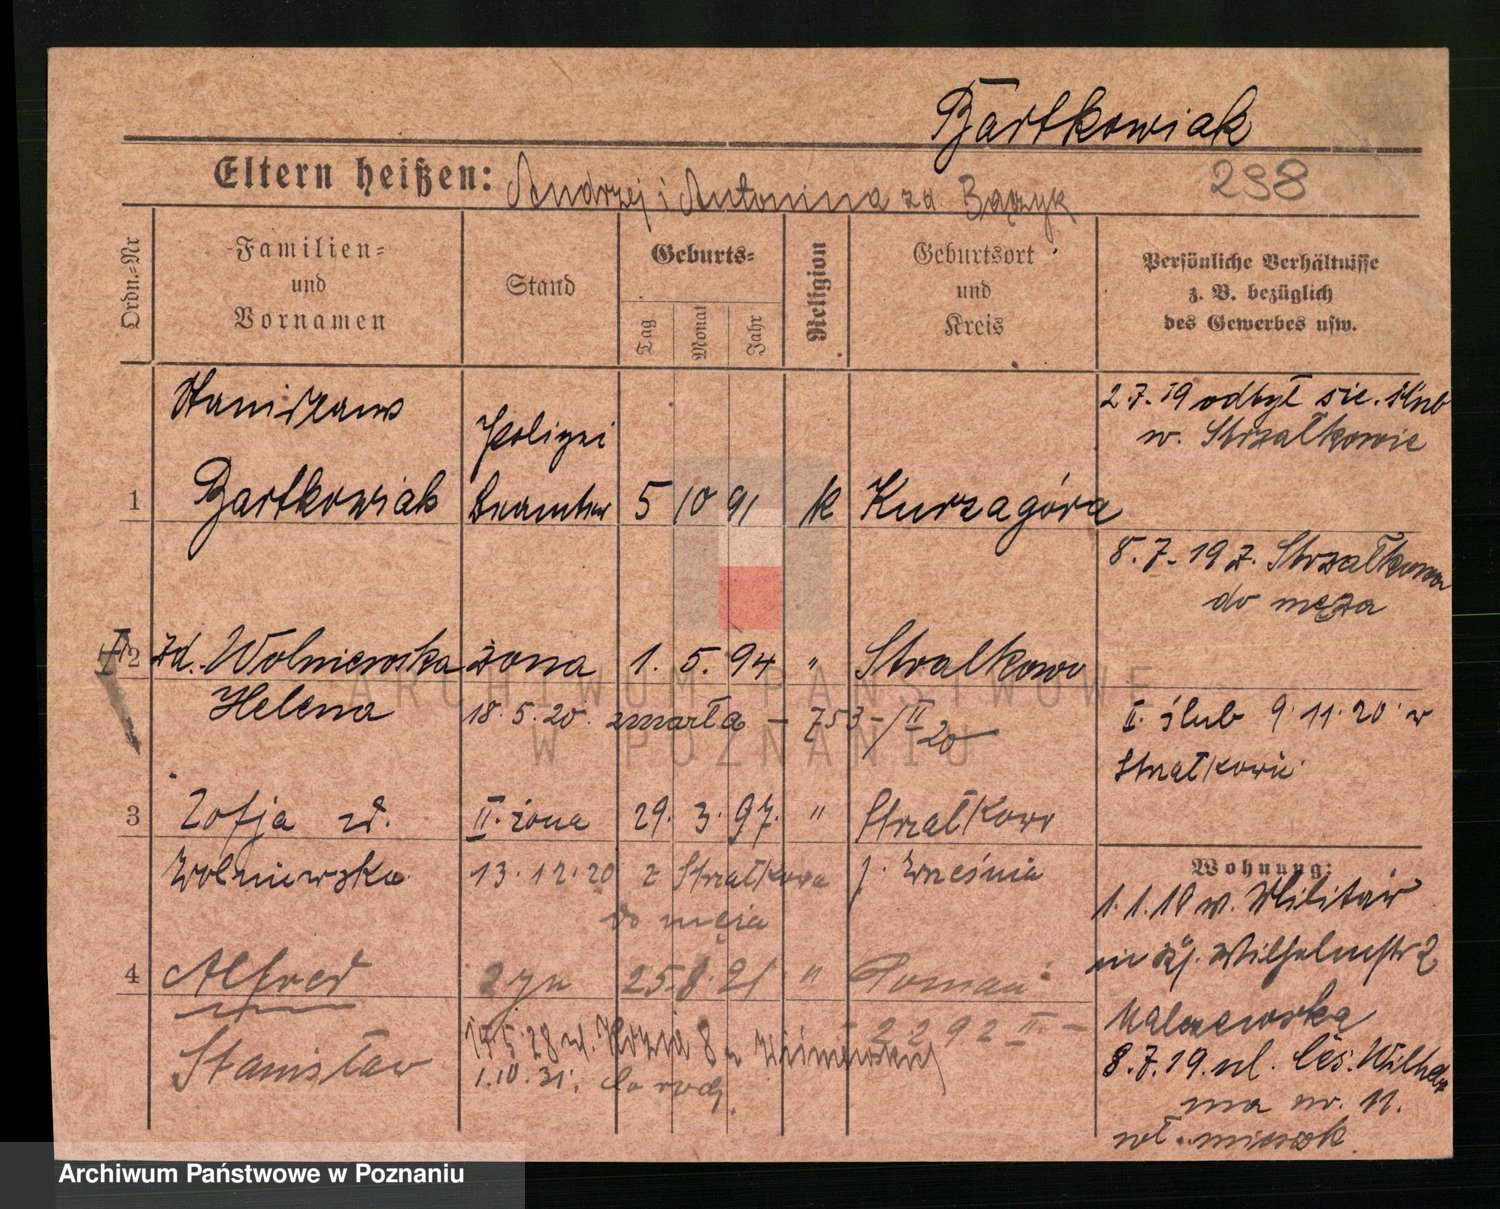 Bartkowiak
Eltern heißen: Andrzej i Antonina zd. Bączyk
298
Ordn.-Nr
Familien-
und
Vornamen
Stand
Geburts-
Tag
Monat
Jahr
Religion
Geburtsort
und
Kreis
Persönliche Verhältnisse
z. B. bezüglich
des Gewerbes usw.
Stanisław
Polizei
2.7.19 odbył się. ślub
w. Strzałkowie
1 Bartkowiak Beamter 5 10 91 k Kurzagóra
8.7.19 z. Strzałkowa
do męża
2 zd. Wolniewska żona 1. 5. 94 " Stralkowo
Helena 18.5.20. zmarła – 753 – / II 20
II. ślub 9.11.20 w
Strzałkowie
3 Zofja zd. II. żona 29. 3. 97. " Strzałkowo
Wolniewska 13.12.20 z Strzałkowa p. Września
do męża
Wohnung:
1.1.10 w. Militär
Wilhelmstr 2
4 Alfred syn 25 8 21 " Poznań
2292 II. –
Stanisław
15.5.28 ul. Kozia 8
1.10.31. do rodz.
8.7.19. ul. Ces. Wilhel
ma nr. 11.
wł. mieszk.
ARCHIWUM PAŃSTWOWE
W POZNANIU
Archiwum Państwowe w Poznaniu